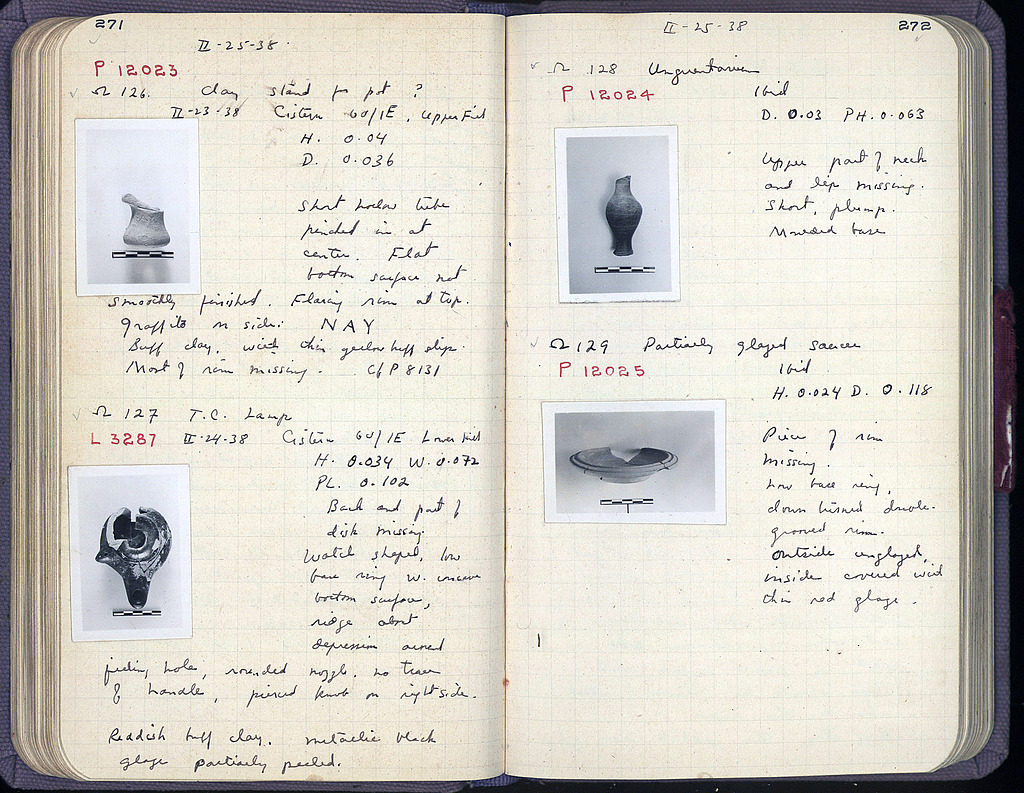 271
II-25-38.
P 12023
Ω 126. Clay stand for pot ?
II-23-38 Cistern 60/IE, Upper Fill
H. 0.04
D. 0.036
Short hollow tube
pinched in at
center. Flat
bottom surface not
smoothly finished. Flaring rim at top.
Graffito on side: NAY
Buff clay, with thin yellow buff slip.
Most of rim missing. Cf P 8131
Ω 127 T.C. Lamp
L 3287 II-24-38 Cistern 60/IE Lower Fill
H. 0.034 W. 0.072
PL. 0.102
Back and part of
disk missing.
Watch shaped, low
base ring w. concave
bottom surface,
ridge about
depression around
filling hole, rounded nozzle, no trace
of handle, pierced knob on right side.
Reddish buff clay. Metallic black
glaze partially peeled.
II-25-38
272
Ω 128 Unguentarium
P 12024 Ibid
D. 0.03 PH. 0.063
Upper part of neck
and lip missing.
Short, plump.
Moulded base
Ω 129 Partially glazed saucer
P 12025 Ibid
H. 0.024 D. 0.118
Piece of rim
missing.
Low base ring,
down turned double-
grooved rim.
Outside unglazed,
inside covered with
thin red glaze.